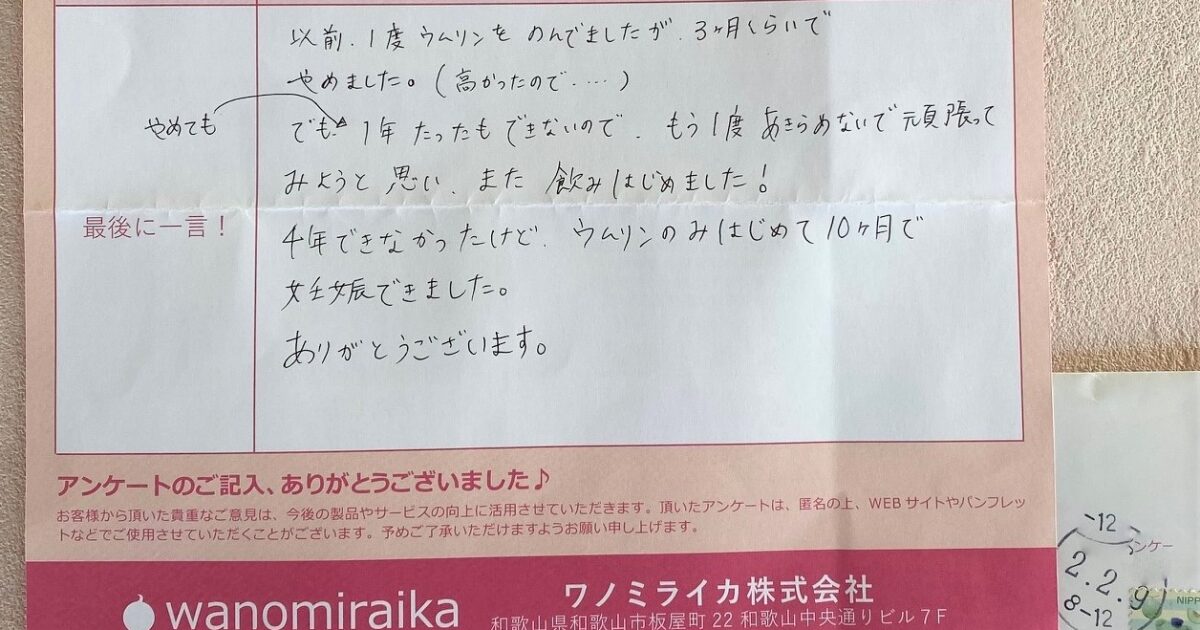 以前、1度ウムリンを のんでましたが、3ヶ月くらいで
やめました。(高かったので・・・・)
やめても
でも 1年たったもできないので、もう1度あきらめないで頑張って
みようと思い、また 飲みはじめました!
最後に一言!
4年できなかったけど、ウムリンのみはじめて10ヶ月で
妊娠できました。
ありがとうございます。
アンケートのご記入、ありがとうございました♪
お客様から頂いた貴重なご意見は、今後の製品やサービスの向上に活用させていただきます。頂いたアンケートは、匿名の上、WEBサイトやパンフレッ
トなどでご使用させていただくことがございます。予めご了承いただけますようお願い申し上げます。
wanomiraika
ワノミライカ株式会社
和歌山県和歌山市板屋町22 和歌山中央通りビル7F
ンケー
-12
2.2.9
8-12
NIPP